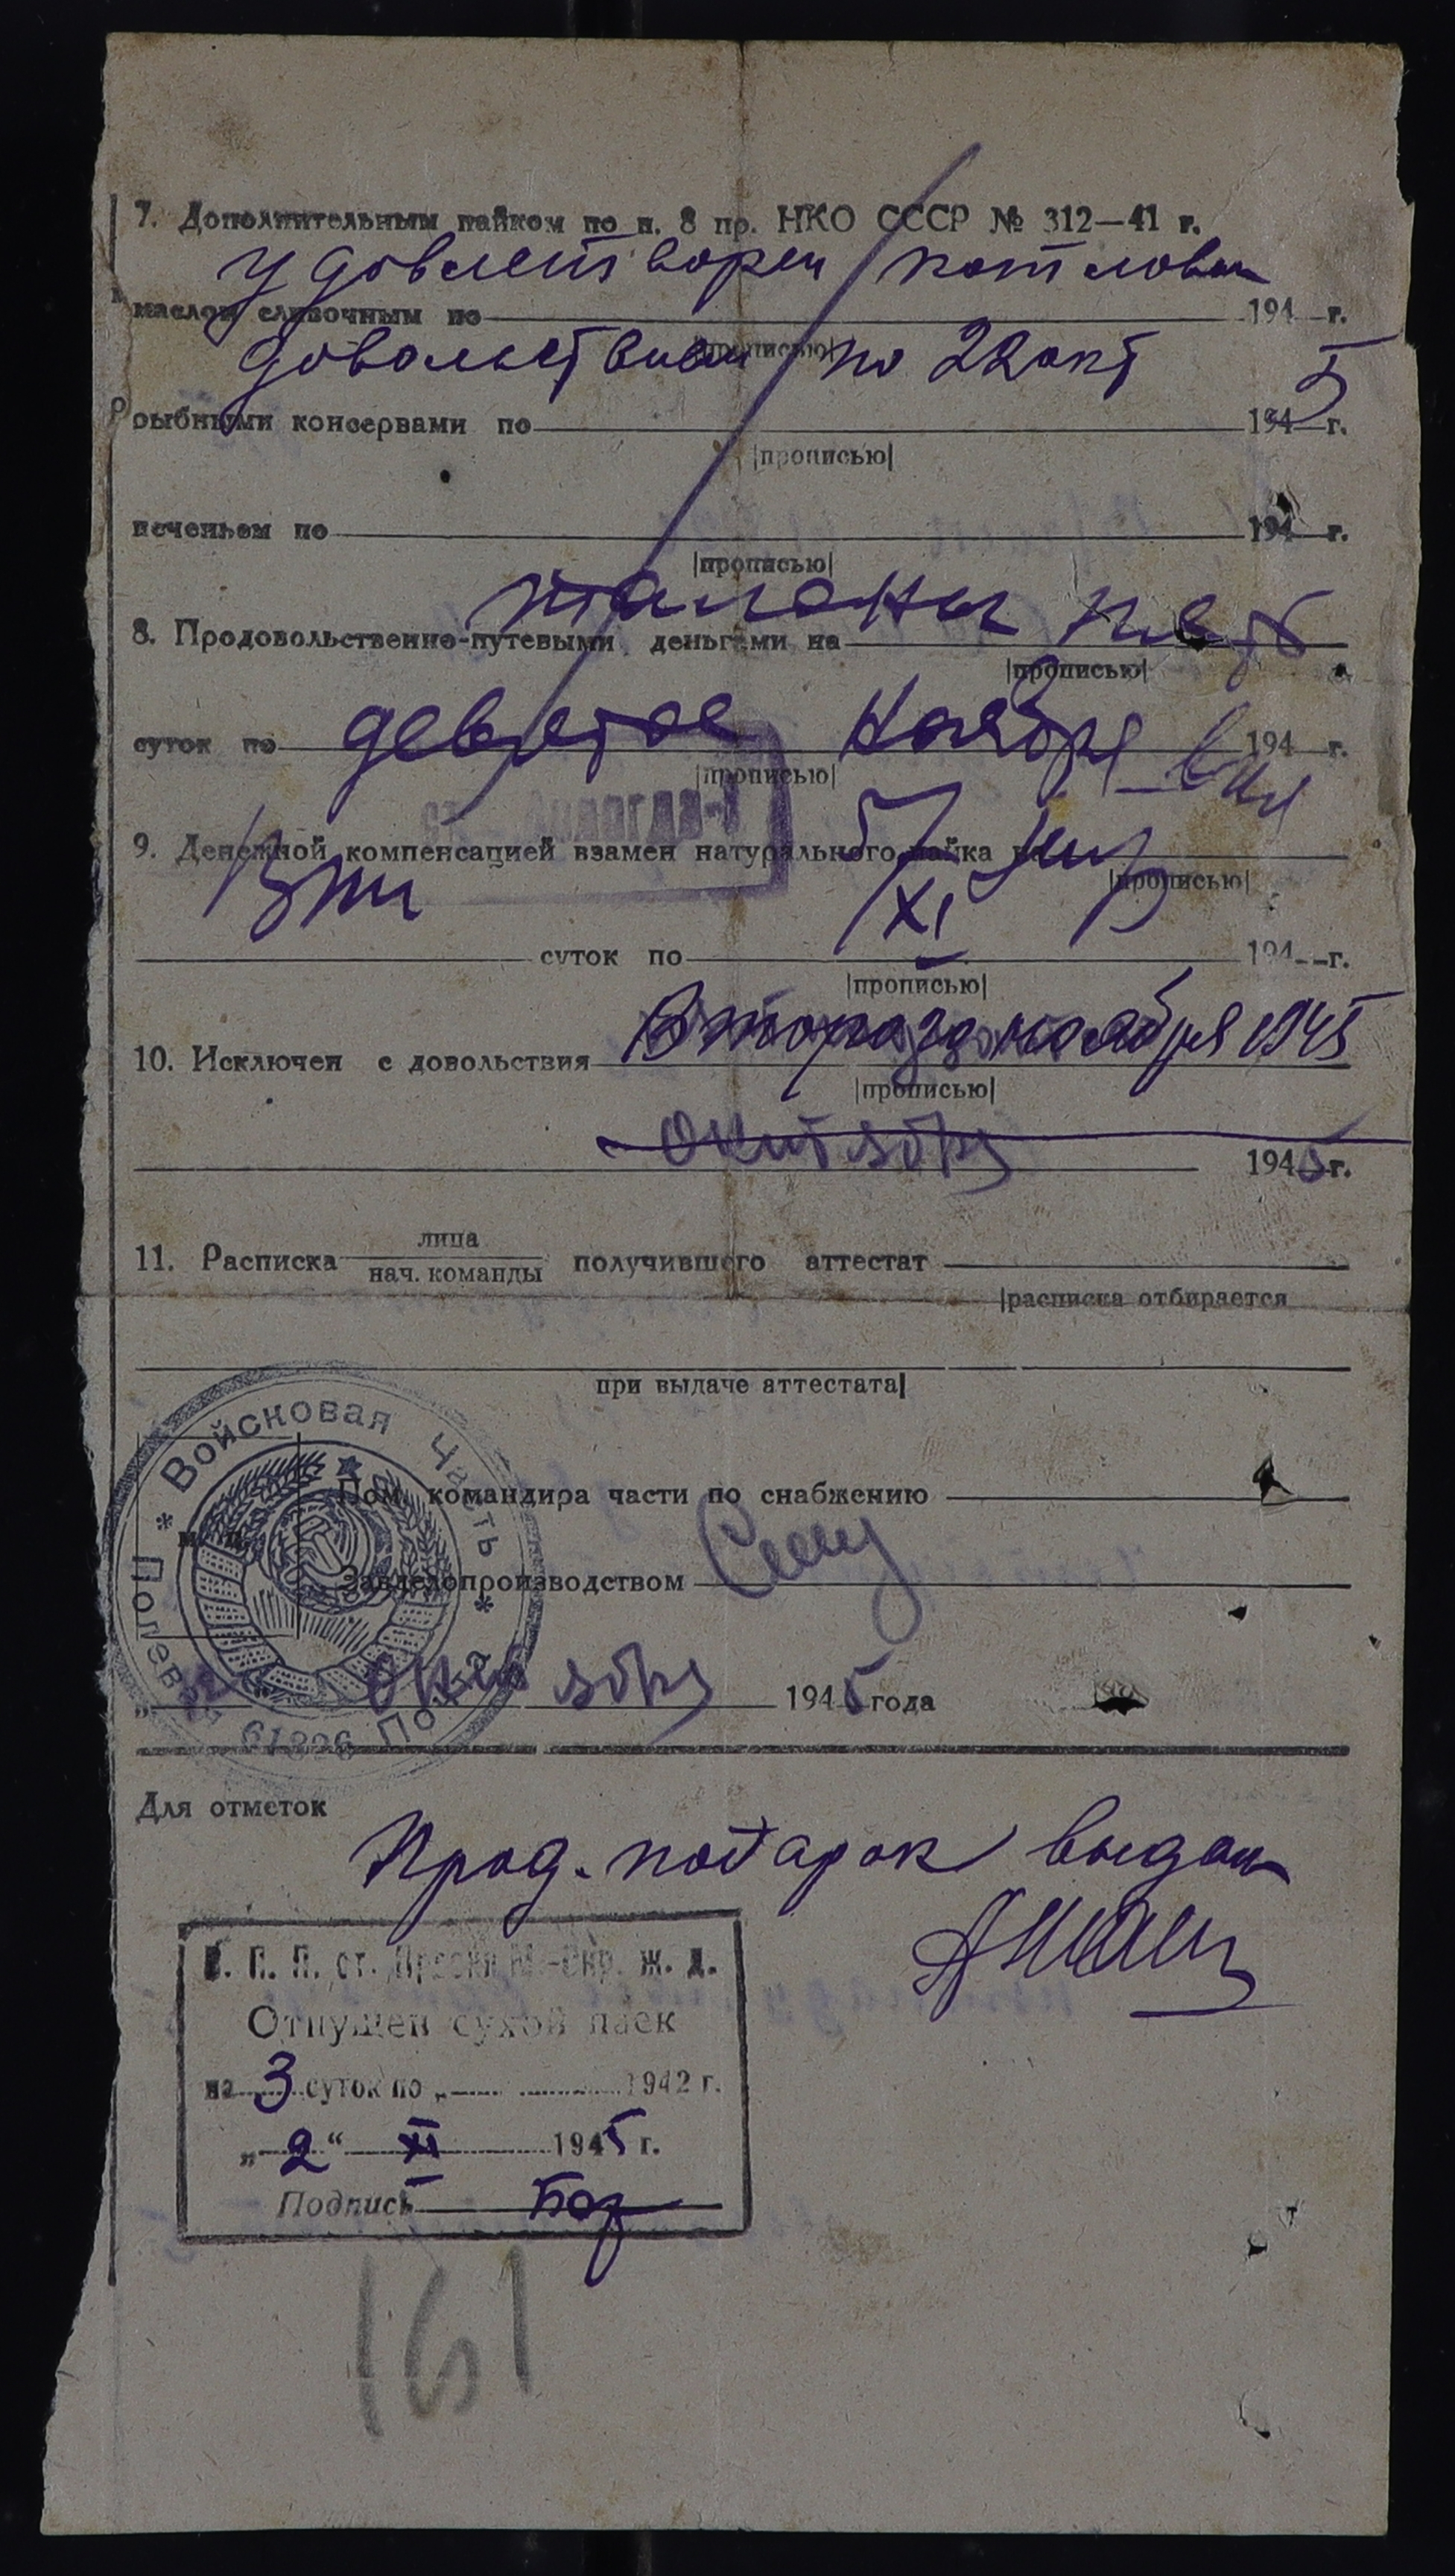 7. Дополнительным пайком по п. 8 пр. НКО СССР № 312—41 г.
удовлетворен котловым
маслом сливочным по 194 г.
|прописью|
довольствием по 22 окт
рыбными консервами по 1945 г.
|прописью|
печеньем по 194 г.
|прописью|
талоны
8. Продовольственно-путевыми деньгами на
|прописью|
суток по девятое ноября 194 г.
|прописью|
9. Денежной компенсацией взамен натурального пайка на
|прописью|
5/XI
суток по 194 г.
|прописью|
10. Исключен с довольствия Второго ноября 1945
|прописью|
октября 1945 г.
11. Расписка лица получившего аттестат
нач. команды
|расписка отбирается
при выдаче аттестата|
Войсковая Часть
Полевая Почта
61226
Пом. командира части по снабжению
м. п.
Завделопроизводством
„ 22 “ октября 1945 года
Для отметок
Прод. подарок выдан
П. П. ст. Пресня М.-Окр. ж. д.
Отпущен сухой паек
на 3 суток по „ 1942 г.
„ 2 “ XI 1945 г.
Подпись
161